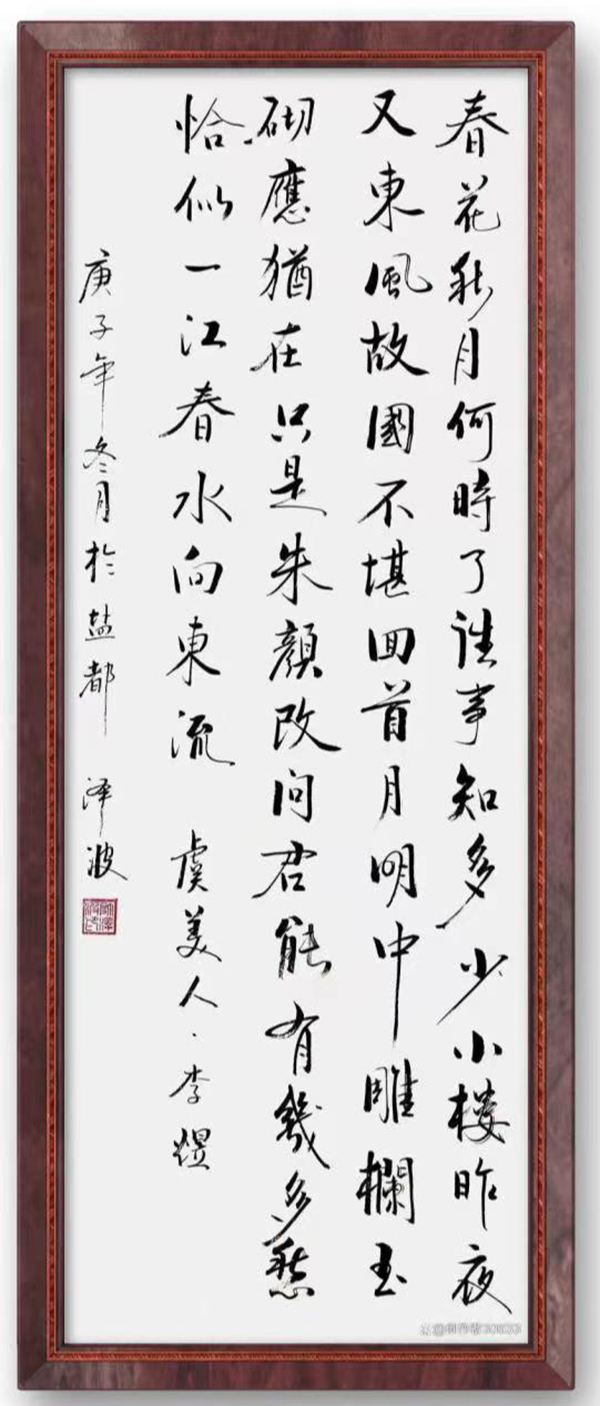 春花秋月何時了往事知多少小楼昨夜
又東風故國不堪回首月明中雕欄玉
砌應猶在只是朱顔改问君能有幾多愁
恰似一江春水向東流 虞美人·李煜
庚子年冬月於盐都 泽波